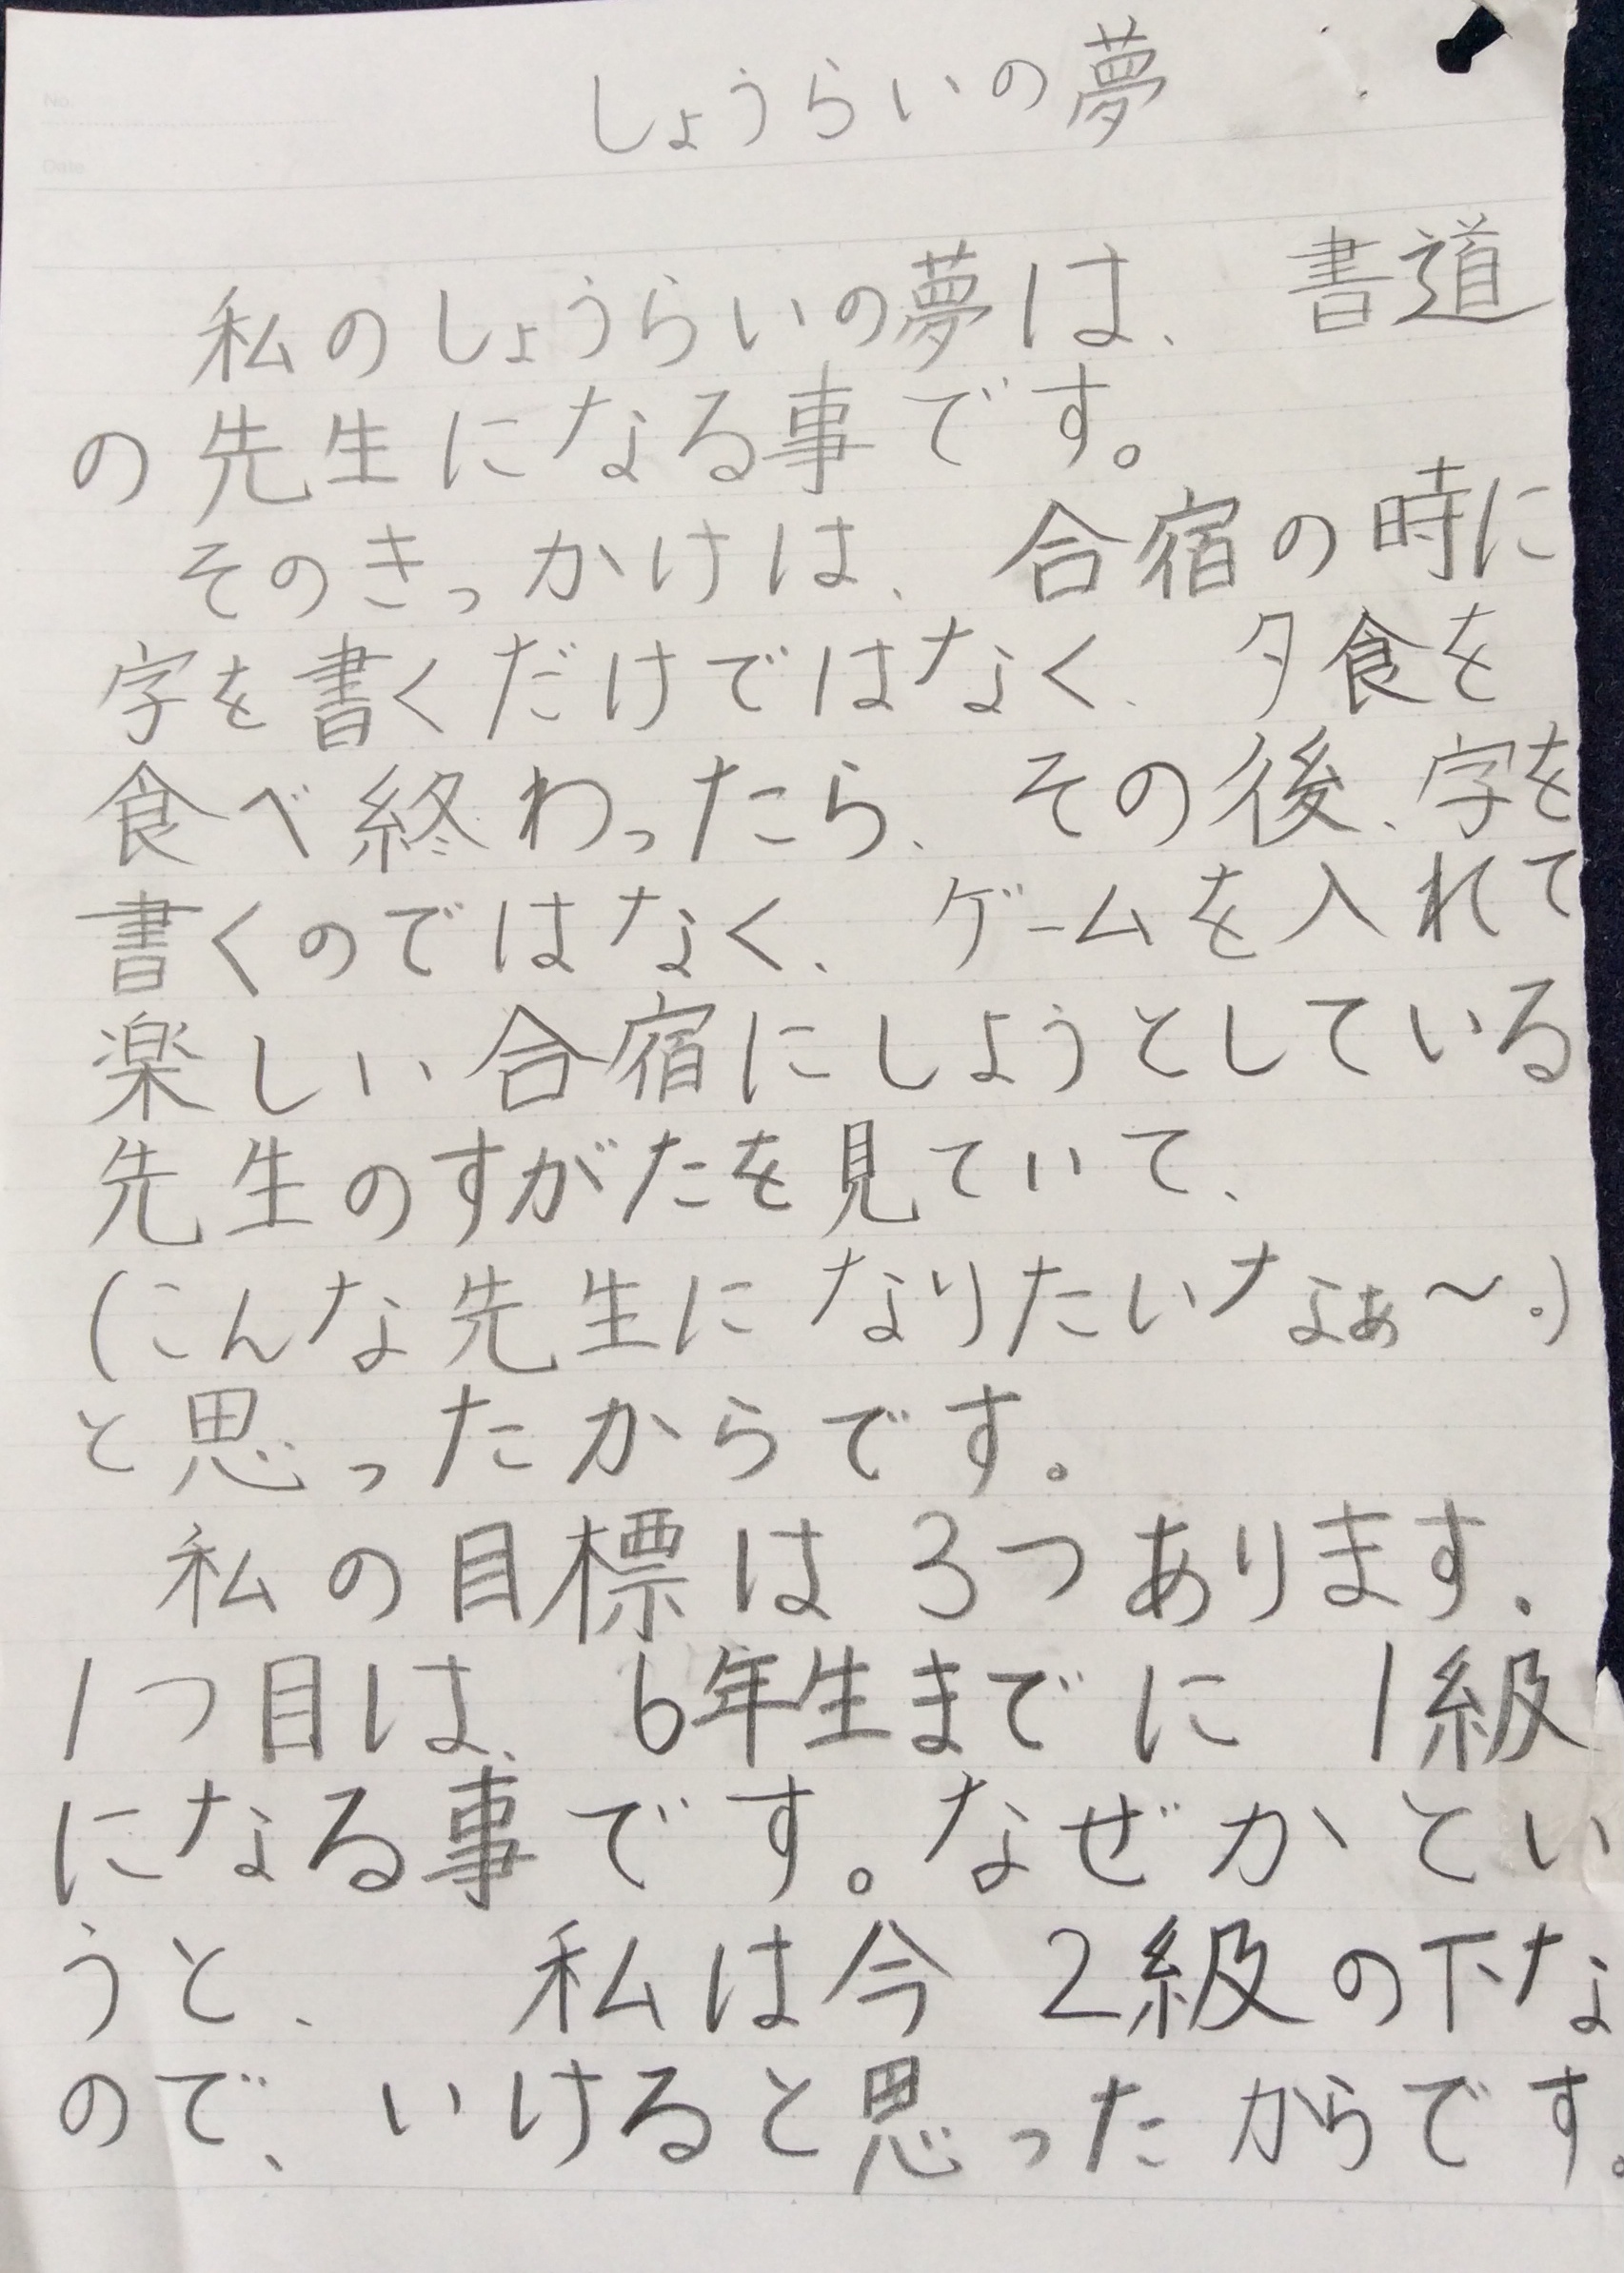 No.
Date
しょうらいの夢
私のしょうらいの夢は、書道
の先生になる事です。
そのきっかけは、合宿の時に
字を書くだけではなく、夕食を
食べ終わったら、その後、字を
書くのではなく、ゲームを入れて
楽しい合宿にしようとしている
先生のすがたを見ていて、
(こんな先生になりたいなぁ〜。)
と思ったからです。
私の目標は3つあります.
1つ目は、6年生までに1級
になる事です。なぜかとい
うと、私は今2級の下な
ので、いけると思ったからです。